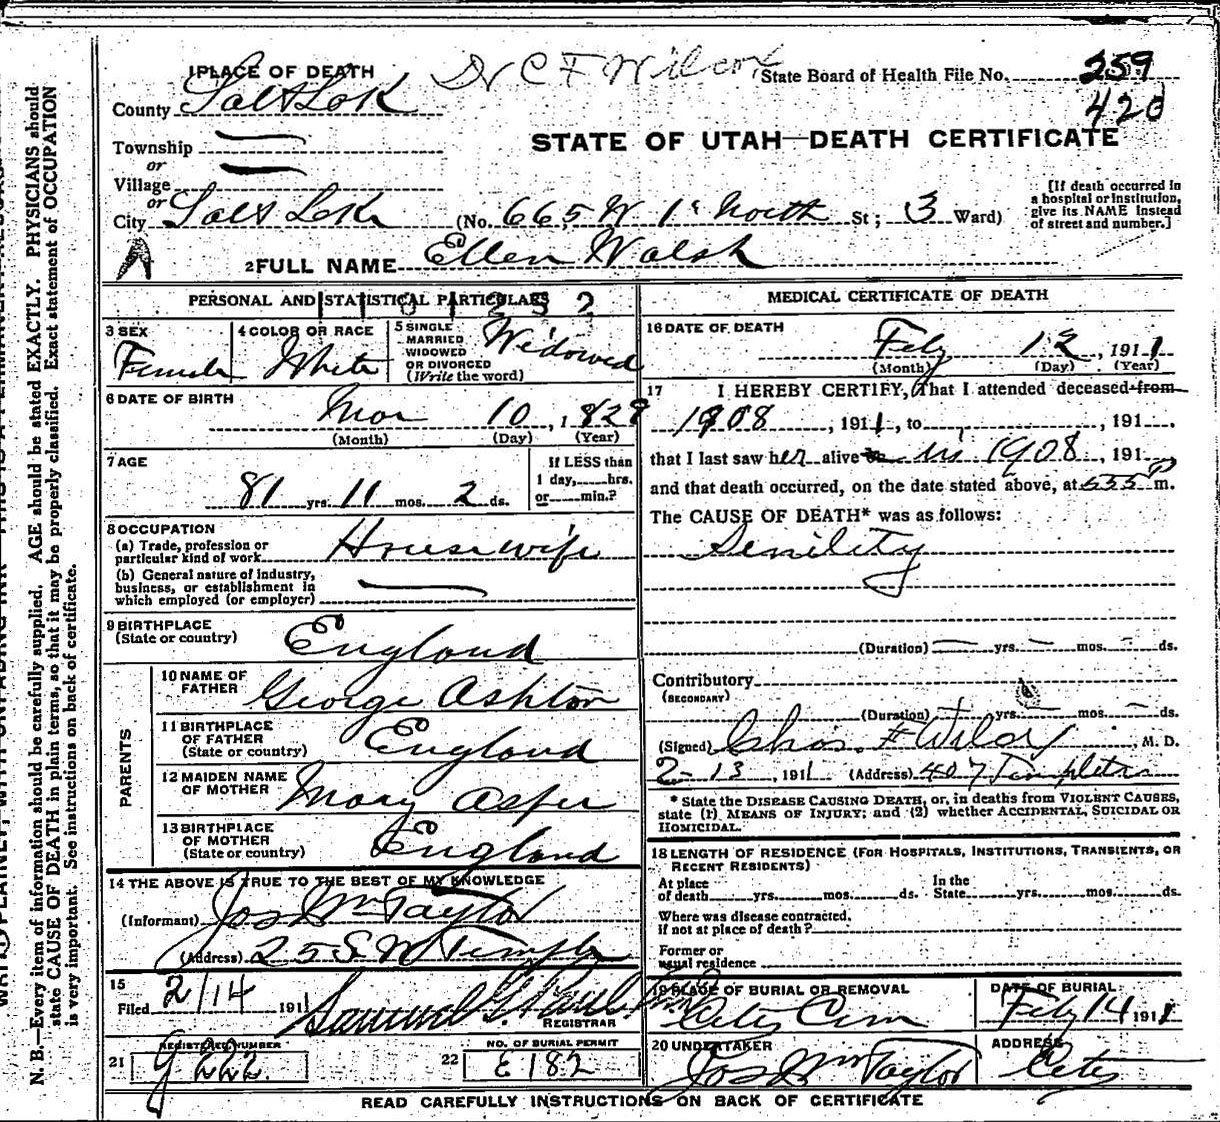 1 PLACE OF DEATH
Dr C F Wilcox
State Board of Health File No. 259
420
County Salt Lake
STATE OF UTAH—DEATH CERTIFICATE
Township
or
Village
or
City Salt Lake (No. 665 W 1st North St; 3 Ward)
[If death occurred in a hospital or institution, give its NAME instead of street and number.]
2 FULL NAME Ellen Walsh
PERSONAL AND STATISTICAL PARTICULARS
3 SEX
Female
4 COLOR OR RACE
White
5 SINGLE
MARRIED
WIDOWED
OR DIVORCED
(Write the word)
Widowed
6 DATE OF BIRTH
Mar 10, 1829
(Month) (Day) (Year)
7 AGE
81 yrs. 11 mos. 2 ds.
If LESS than
1 day, hrs.
or min.?
8 OCCUPATION
(a) Trade, profession or
particular kind of work Housewife
(b) General nature of industry,
business, or establishment in
which employed (or employer)
9 BIRTHPLACE
(State or country) England
PARENTS
10 NAME OF
FATHER George Ashton
11 BIRTHPLACE
OF FATHER
(State or country) England
12 MAIDEN NAME
OF MOTHER Mary Asper
13 BIRTHPLACE
OF MOTHER
(State or country) England
14 THE ABOVE IS TRUE TO THE BEST OF MY KNOWLEDGE
(Informant) Jos Wm Taylor
(Address) 25 S W Temple
15
Filed 2/14 191 Samuel G. Paul
REGISTRAR
21 REGISTERED NUMBER
g 222.
22 NO. OF BURIAL PERMIT
E 182
MEDICAL CERTIFICATE OF DEATH
16 DATE OF DEATH
Feby 12, 1911
(Month) (Day) (Year)
17 I HEREBY CERTIFY, That I attended deceased from
1908, 1911, to , 191
that I last saw her alive on in 1908, 191
and that death occurred, on the date stated above, at 555 P m.
The CAUSE OF DEATH* was as follows:
Senility
(Duration) yrs. mos. ds.
Contributory
(SECONDARY)
(Duration) yrs. mos. ds.
(Signed) Chas. F Wilcox, M. D.
2-13, 1911 (Address) 407 Templeton
* State the DISEASE CAUSING DEATH, or, in deaths from VIOLENT CAUSES,
state (1) MEANS OF INJURY; and (2) whether ACCIDENTAL, SUICIDAL OR
HOMICIDAL.
18 LENGTH OF RESIDENCE (FOR HOSPITALS, INSTITUTIONS, TRANSIENTS, OR
RECENT RESIDENTS)
At place
of death yrs. mos. ds.
In the
State yrs. mos. ds.
Where was disease contracted,
if not at place of death?
Former or
usual residence
19 PLACE OF BURIAL OR REMOVAL
City Cem
DATE OF BURIAL
Feby 14 1911
20 UNDERTAKER
Jos Wm Taylor
ADDRESS
City
READ CAREFULLY INSTRUCTIONS ON BACK OF CERTIFICATE
N. B.—Every item of information should be carefully supplied. AGE should be stated EXACTLY. PHYSICIANS should
state CAUSE OF DEATH in plain terms, so that it may be properly classified. Exact statement of OCCUPATION
is very important. See instructions on back of certificate.